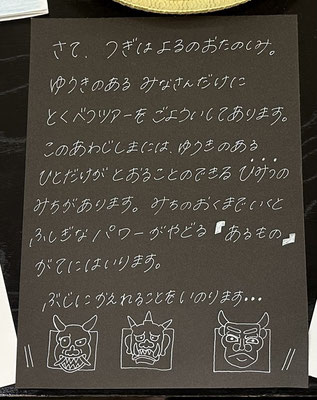 さて、つぎはよるのおたのしみ。
ゆうきのある みなさんだけに
とくべつツアーを ごよういしてあります。
このあわじしまには、ゆうきのある
ひとだけが とおることのできる ひみつの
みちがあります。みちのおくまでいくと
ふしぎな パワーがやどる『あるもの』
がてにはいります。
ぶじにかえれることをいのります・・・